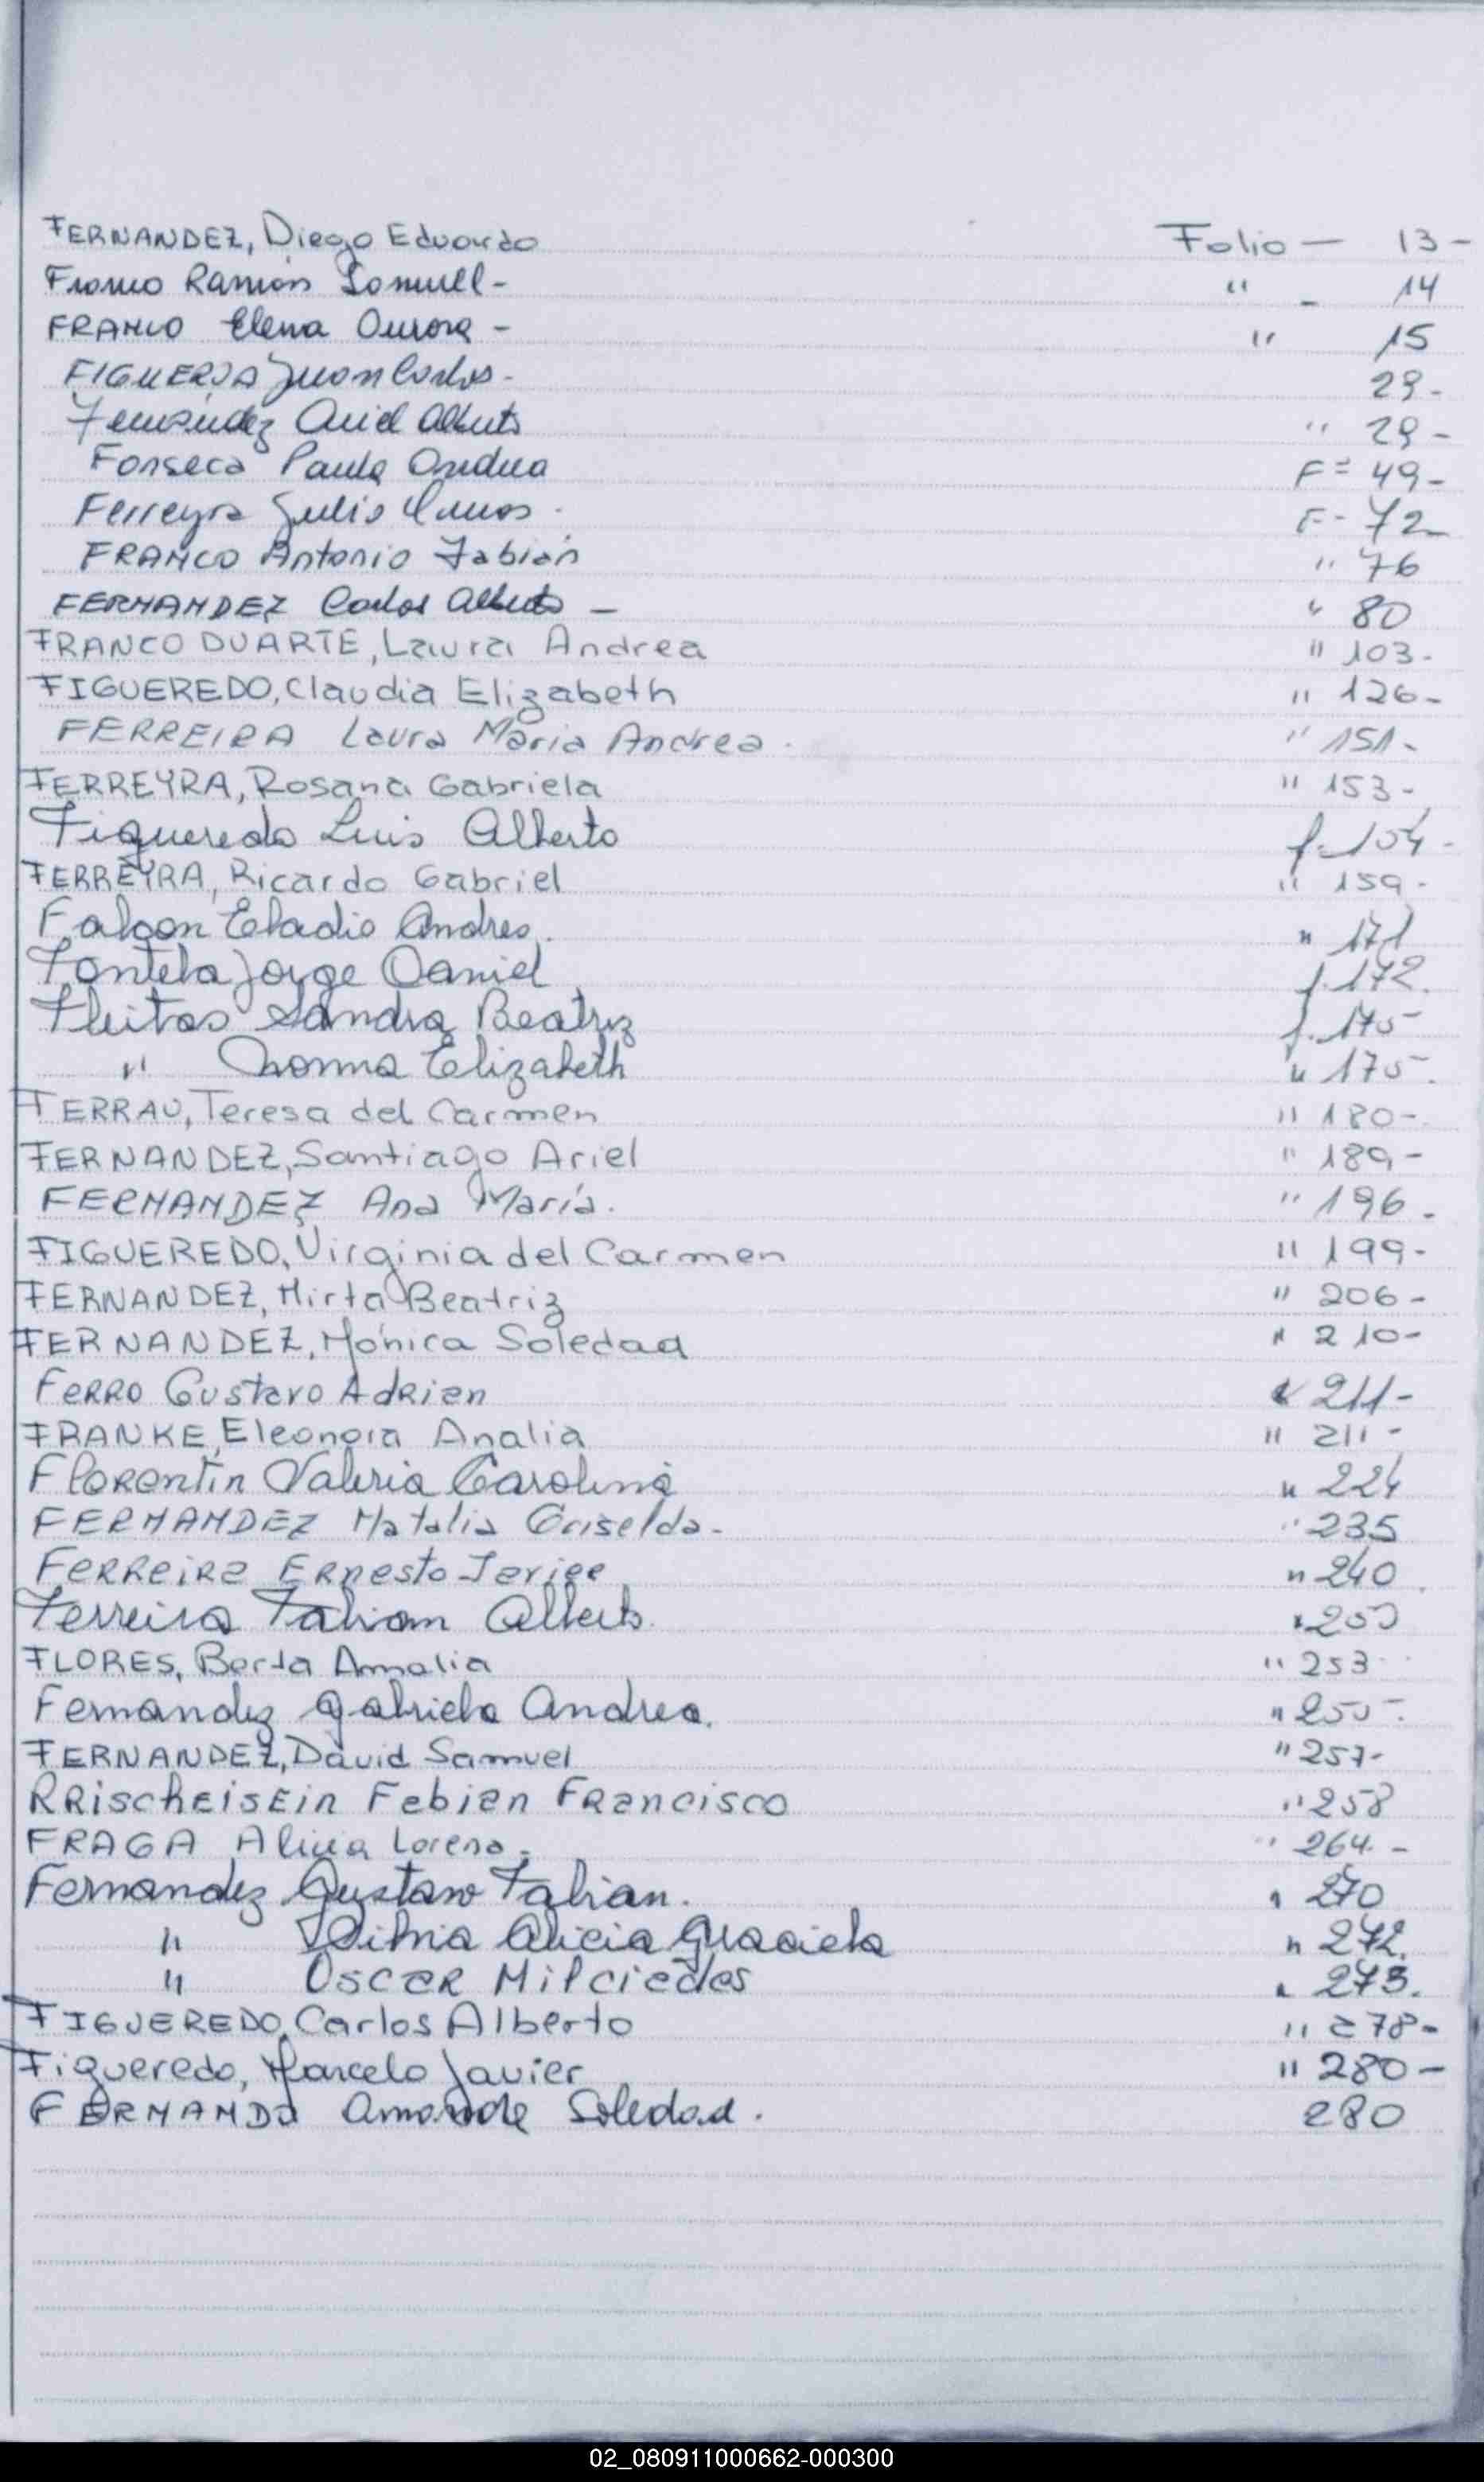 FERNANDEZ, Diego Eduardo Folio — 13 -
Franco Ramón Samuell - " - 14
FRANCO Elena Aurora - " 15
FIGUEROA Juan Carlos - 29 -
Fernández Ariel Alberto " 29 -
Fonseca Paula Andrea F = 49 -
Ferreyra Julio F - 72
FRANCO Antonio Fabián " 76
FERNANDEZ Carlos Alberto — " 80
FRANCO DUARTE, Laura Andrea " 103 -
FIGUEREDO, Claudia Elizabeth " 126 -
FERREIRA Laura María Andrea - " 151 -
FERREYRA, Rosana Gabriela " 153 -
Figueredo Luis Alberto f. 154 -
FERREYRA, Ricardo Gabriel " 159 -
Falcon Eladio Andres. " 171
Fontela Jorge Daniel f. 172.
Fleitas Sandra Beatriz f. 175
" Norma Elizabeth " 175.
FERRAU, Teresa del Carmen " 180 -
FERNANDEZ, Santiago Ariel " 189 -
FERNANDEZ Ana María. " 196 -
FIGUEREDO, Virginia del Carmen " 199 -
FERNANDEZ, Mirta Beatriz " 206 -
FERNANDEZ, Mónica Soledad " 210 -
FERRO Gustavo Adrian " 211 -
FRANKE, Eleonora Analia " 211 -
Florentín Valeria Carolina " 224
FERNANDEZ Natalia Griselda - " 235
Ferreira Ernesto Javier " 240
Ferreira Fabian Alberto. "
FLORES, Berta Amalia " 253
Fernandez Gabriela Andrea. " 255 -
FERNANDEZ, David Samuel " 257 -
RRischeisein Fabian Francisco " 258
FRAGA Alicia Lorena - " 264 -
Fernandez Gustavo Fabian. " 270
" Silvia Alicia Graciela " 272.
" Oscar Milciades " 273.
FIGUEREDO, Carlos Alberto " 278 -
Figueredo, Marcelo Javier " 280 -
Soledad. 280
02_080911000662-000300